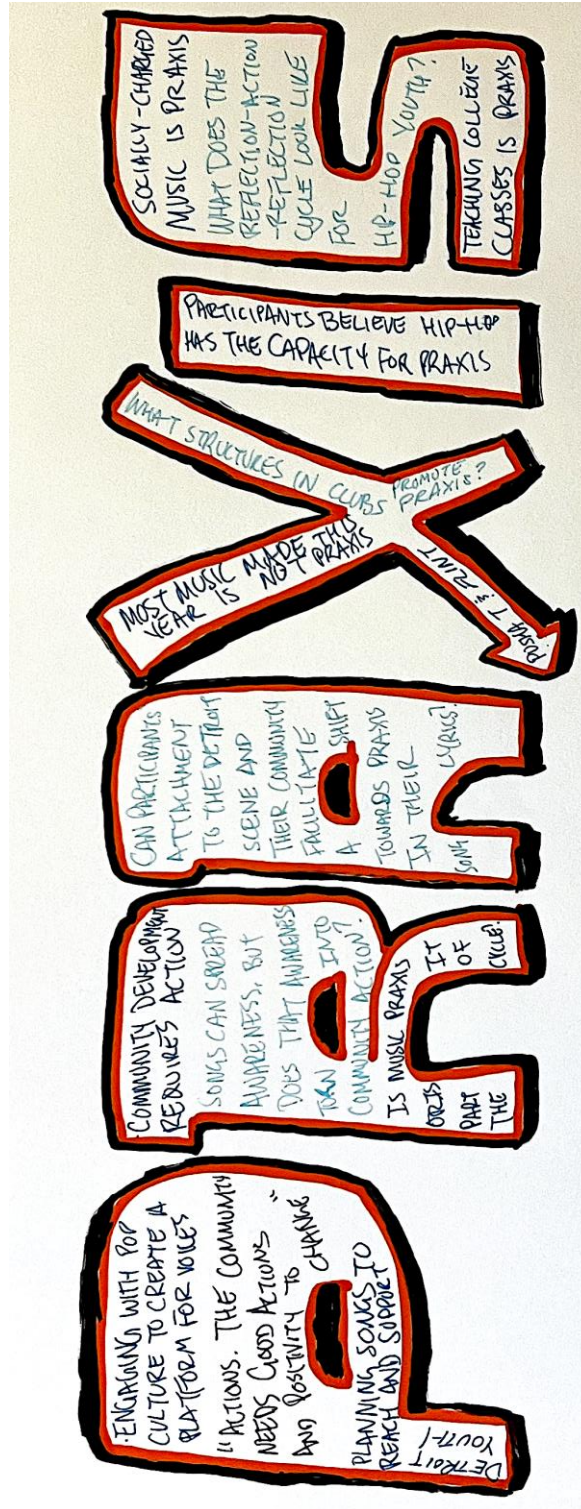 PRAXIS
·ENGAGING WITH POP
CULTURE TO CREATE A
PLATFORM FOR VOICES
"ACTIONS. THE COMMUNITY
NEEDS GOOD ACTIONS
AND POSITIVITY TO CHANGE"
PLANNING SONGS TO
REACH AND SUPPORT
DETROIT
YOUTH
·COMMUNITY DEVELOPMENT
REQUIRES ACTION
SONGS CAN SPREAD
AWARENESS, BUT
DOES THAT AWARENESS
TURN INTO
COMMUNITY ACTION?
IS MUSIC PRAXIS
OR IS IT
PART OF
THE CYCLE?
CAN PARTICIPANTS
ATTACHMENT
TO THE DETROIT
SCENE AND
THEIR COMMUNITY
FACILITATE
A SHIFT
TOWARDS PRAXIS
IN THEIR
SONG LYRICS?
MOST MUSIC MADE THIS
YEAR IS NOT PRAXIS
WHAT STRUCTURES IN CLUBS PROMOTE
PRAXIS?
PUSHA T &
PARTICIPANTS BELIEVE HIP-HOP
HAS THE CAPACITY FOR PRAXIS
SOCIALLY-CHARGED
MUSIC IS PRAXIS
WHAT DOES THE
REFLECTION-ACTION
-REFLECTION
CYCLE LOOK LIKE
FOR
HIP-HOP YOUTH?
TEACHING COLLEGE
CLASSES IS PRAXIS